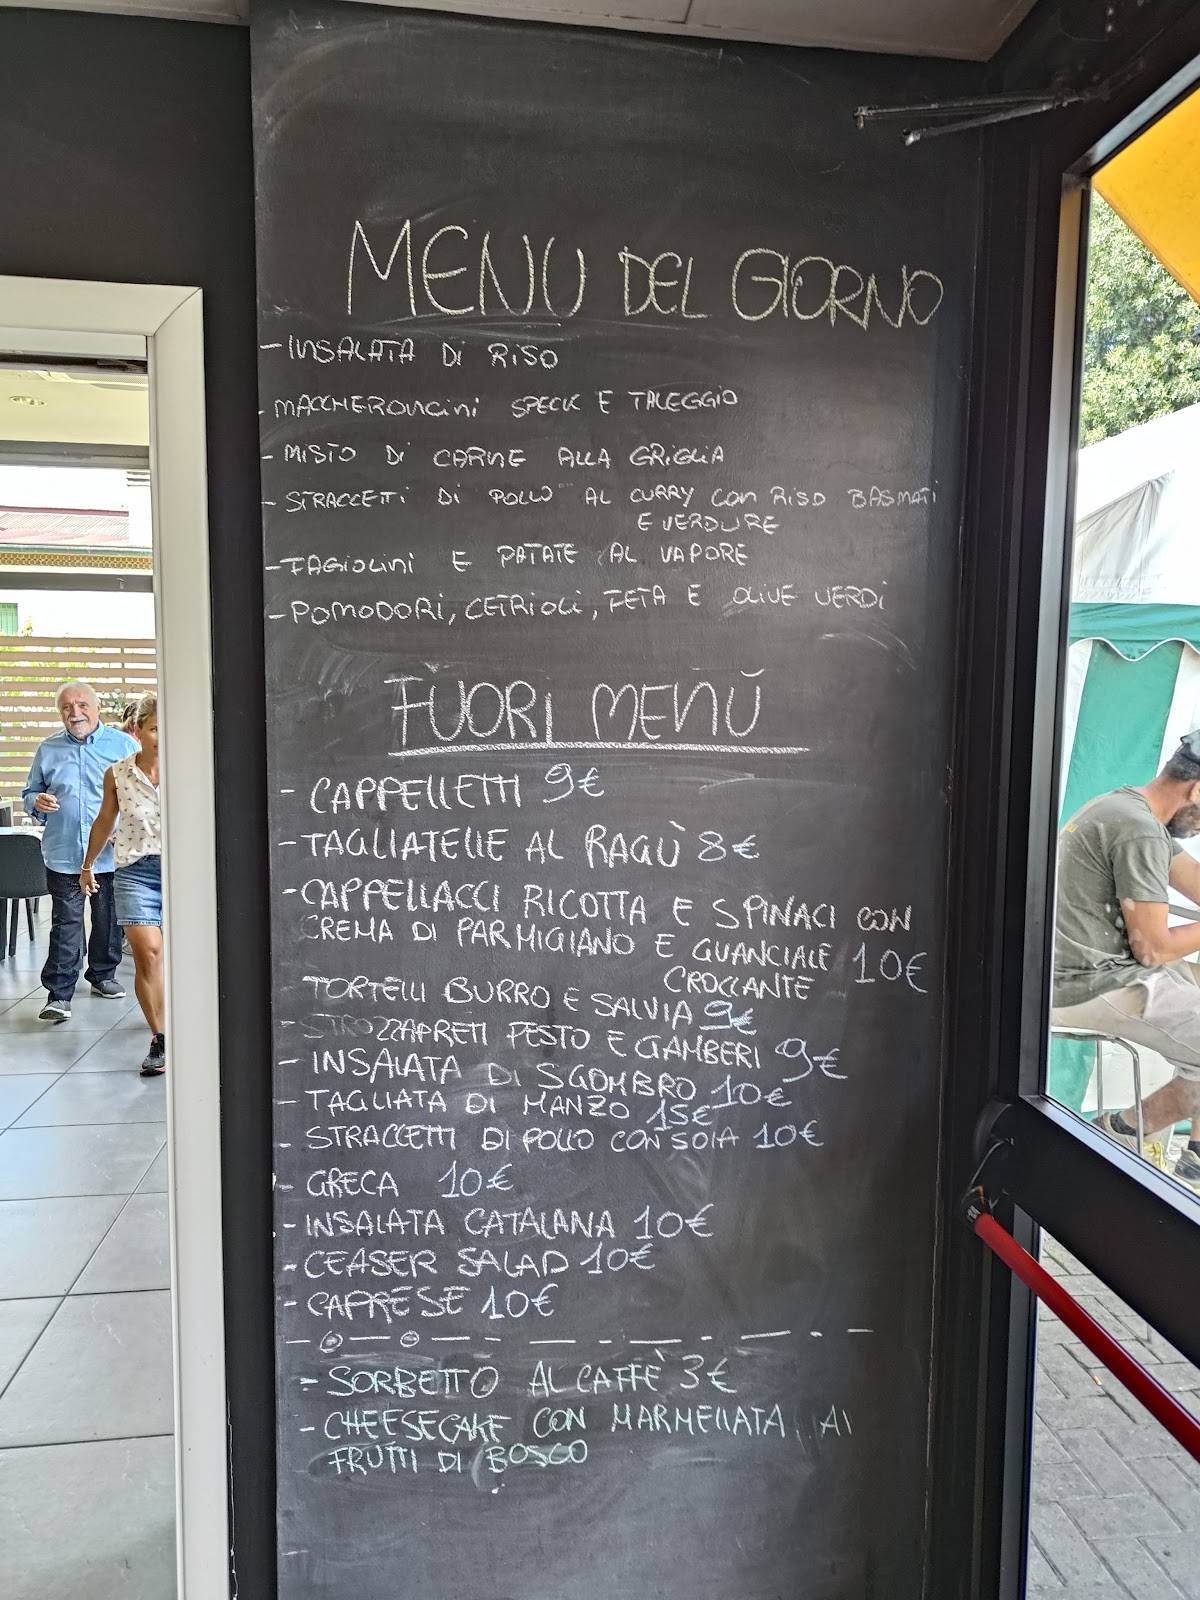 MENU DEL GIORNO
- INSALATA DI RISO
- MACCHERONCINI SPECK E TALEGGIO
- MISTO DI CARNE ALLA GRIGLIA
- STRACCETTI DI POLLO AL CURRY CON RISO BASMATI
E VERDURE
- FAGIOLINI E PATATE AL VAPORE
- POMODORI, CETRIOLI, FETA E OLIVE VERDI
FUORI MENÙ
- CAPPELLETTI 9€
- TAGLIATELLE AL RAGÙ 8€
- CAPPELLACCI RICOTTA E SPINACI CON
CREMA DI PARMIGIANO E GUANCIALE 10€
CROCCANTE
TORTELLI BURRO E SALVIA 9€
- STROZZAPRETI PESTO E GAMBERI 9€
- INSALATA DI SGOMBRO 10€
- TAGLIATA DI MANZO 15€
- STRACCETTI DI POLLO CON SOIA 10€
- GRECA 10€
- INSALATA CATALANA 10€
- CEASER SALAD 10€
- CAPRESE 10€
- SORBETTO AL CAFFÈ 3€
- CHEESECAKE CON MARMELLATA AI
FRUTTI DI BOSCO